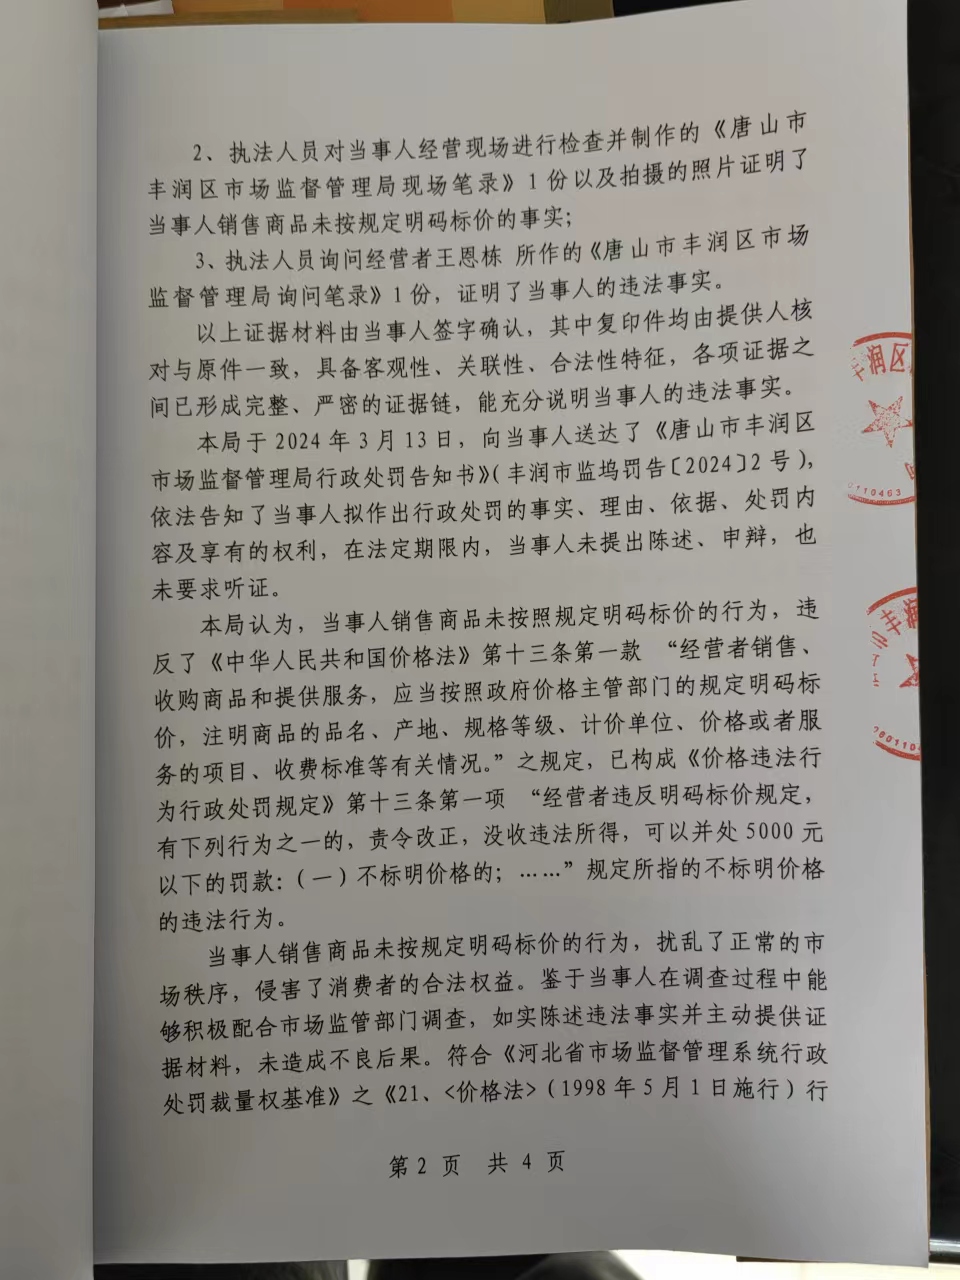 2、执法人员对当事人经营现场进行检查并制作的《唐山市
丰润区市场监督管理局现场笔录》1份以及拍摄的照片证明了
当事人销售商品未按规定明码标价的事实；
3、执法人员询问经营者王恩栋 所作的《唐山市丰润区市场
监督管理局询问笔录》1份，证明了当事人的违法事实。
以上证据材料由当事人签字确认，其中复印件均由提供人核
对与原件一致，具备客观性、关联性、合法性特征，各项证据之
间已形成完整、严密的证据链，能充分说明当事人的违法事实。
本局于2024年3月13日，向当事人送达了《唐山市丰润区
市场监督管理局行政处罚告知书》（丰润市监坞罚告〔2024〕2号），
依法告知了当事人拟作出行政处罚的事实、理由、依据、处罚内
容及享有的权利，在法定期限内，当事人未提出陈述、申辩，也
未要求听证。
本局认为，当事人销售商品未按照规定明码标价的行为，违
反了《中华人民共和国价格法》第十三条第一款 “经营者销售、
收购商品和提供服务，应当按照政府价格主管部门的规定明码标
价，注明商品的品名、产地、规格等级、计价单位、价格或者服
务的项目、收费标准等有关情况。”之规定，已构成《价格违法行
为行政处罚规定》第十三条第一项 “经营者违反明码标价规定，
有下列行为之一的，责令改正，没收违法所得，可以并处5000元
以下的罚款：（一）不标明价格的；……”规定所指的不标明价格
的违法行为。
当事人销售商品未按规定明码标价的行为，扰乱了正常的市
场秩序，侵害了消费者的合法权益。鉴于当事人在调查过程中能
够积极配合市场监管部门调查，如实陈述违法事实并主动提供证
据材料，未造成不良后果。符合《河北省市场监督管理系统行政
处罚裁量权基准》之《21、<价格法>（1998年5月1日施行）行
第2页 共4页
丰润区
0110463
丰润